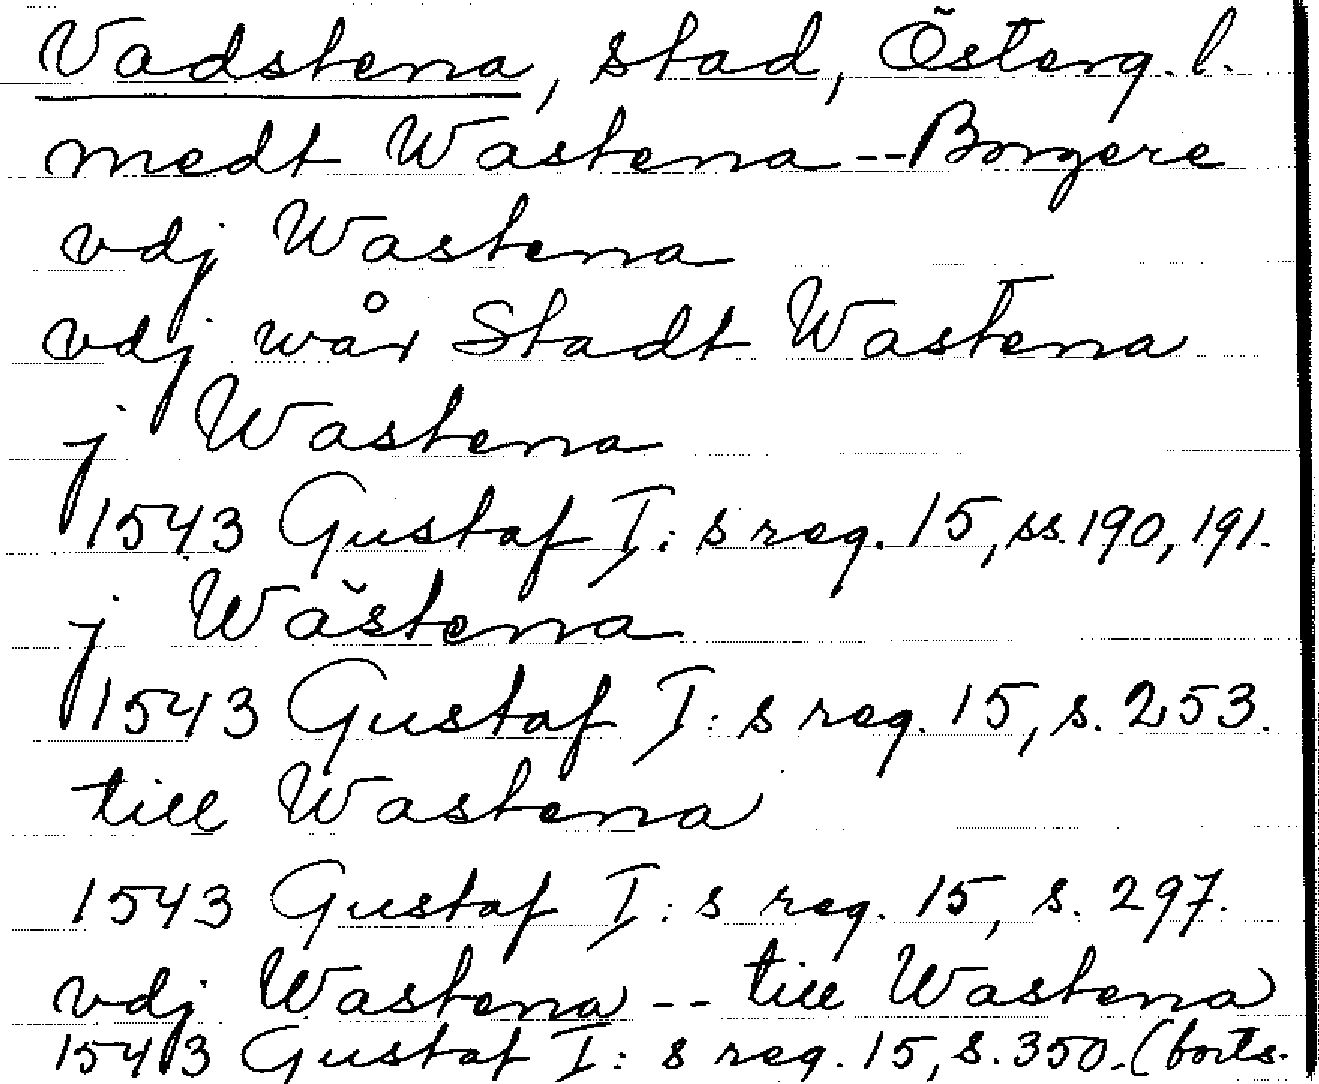 Vadstena, stad, Österg. l.
medt Wastena -- Borgere
vdj Wastena
vdj wår Stadt Wastena
j Wastena
1543 Gustaf I: s reg. 15, ss. 190, 191.
j Wästena
1543 Gustaf I: s reg. 15, s. 253.
till Wastena
1543 Gustaf I: s reg. 15, s. 297.
vdj Wastena -- till Wastena
1543 Gustaf I: s reg. 15, s. 350. (forts.